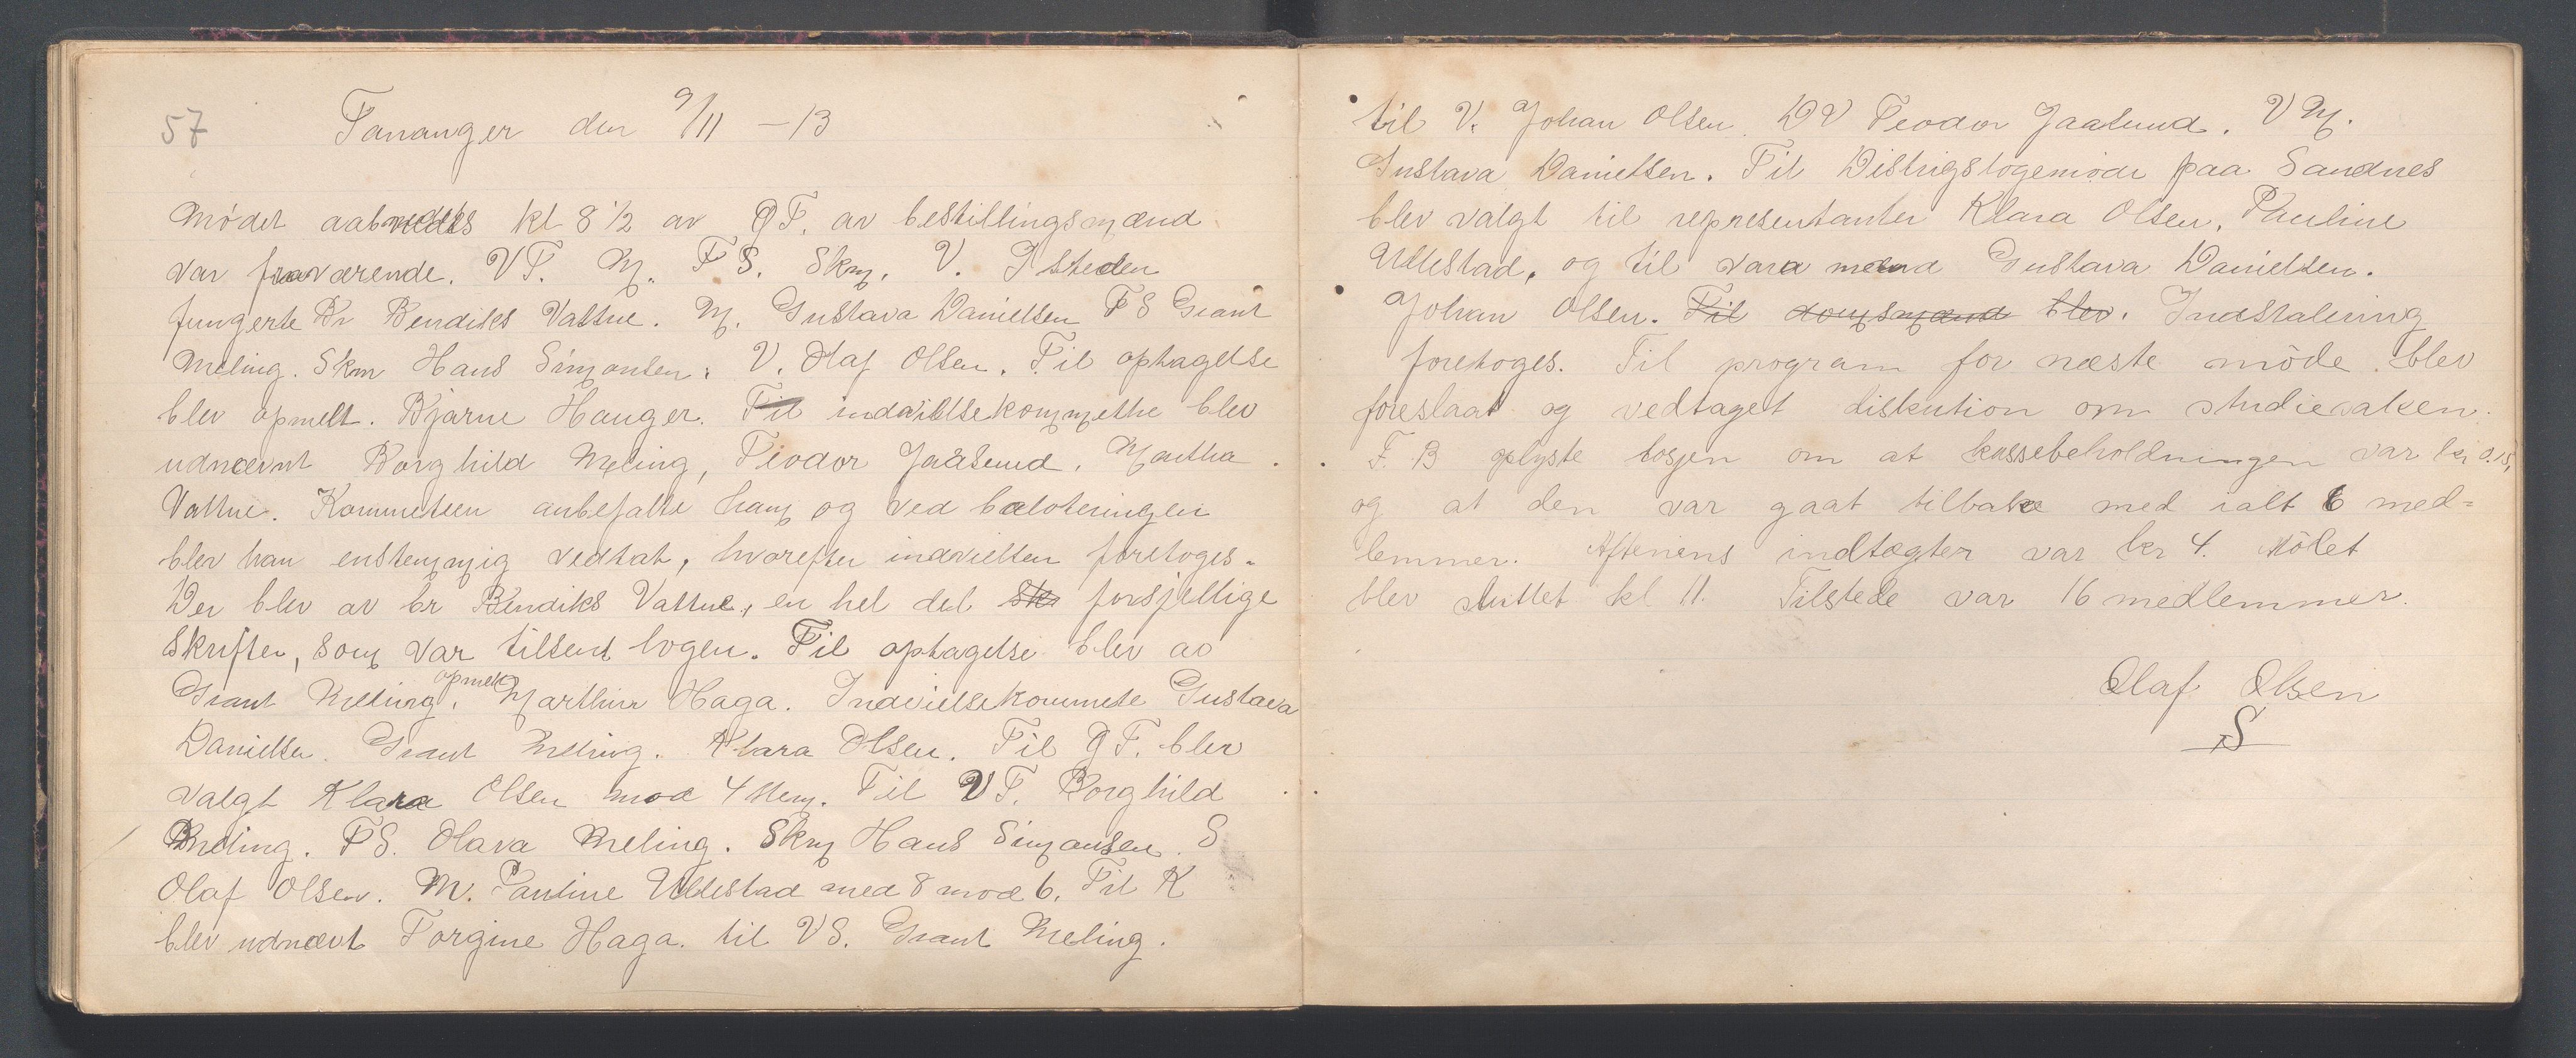 57
Tananger den 9/11 – 13
Mödet aabnedes kl 8 1/2 av QT. av bestillingsmænd
var fraværende. VT. M. FS. Skm. V. I steden
fungerte Br Bendiks Vattne. M. Gustava Danielsen FS Grant
Meling. Skm Hans Simonsen. V. Olaf Olsen. Til optagelse
blev opmelt. Bjarne Hauger. Til indvielsekommethe blev
udnævnt Borghild Meling, Teodor Jaasund, Martha
Vattne. Kommeteen anbefalte ham og ved baloteringen
blev han enstemmig vedtat, hvorefter indvielsen foretoges.
Der blev av br Bendiks Vattne, en hel del ske forsjellige
Skrifter, som var tilsent logen. Til optagelse blev av
Grant Meling, opmelt Marthin Haga. Indvielsekommete Gustava
Danielsen. Grant Meling. Klara Olsen. Til QT. blev
valgt Klara Olsen mod 4 stem. Til VT. Borghild
Meling. FS. Olava Meling. Skm Hans Simonsen. S
Olaf Olsen. M. Pauline Ullestad med 8 mod 6. Til K
blev udnævt Torgine Haga. til VS. Grant Meling.
til V. Johan Olsen. DV Teodor Jaasund. VM.
Gustava Danielsen. Til Distrigslogemöde paa Sandnes
blev valgt til representanter Klara Olsen, Pauline
Ullestad, og til vara mænd Gustava Danielsen.
Johan Olsen. Til domsmænd blev. Indstalering
foretoges. Til program for næste möde blev
foreslaat og vedtaget diskution om studiesaken.
F. B oplyste losjen om at kassebeholdningen var kr 0.15,
og at den var gaat tilbake med ialt 6 med=
lemmer. Aftenens indtægter var kr 4. Mötet
blev sluttet kl 11. Tilstede var 16 medlemmer.
Olaf Olsen
S